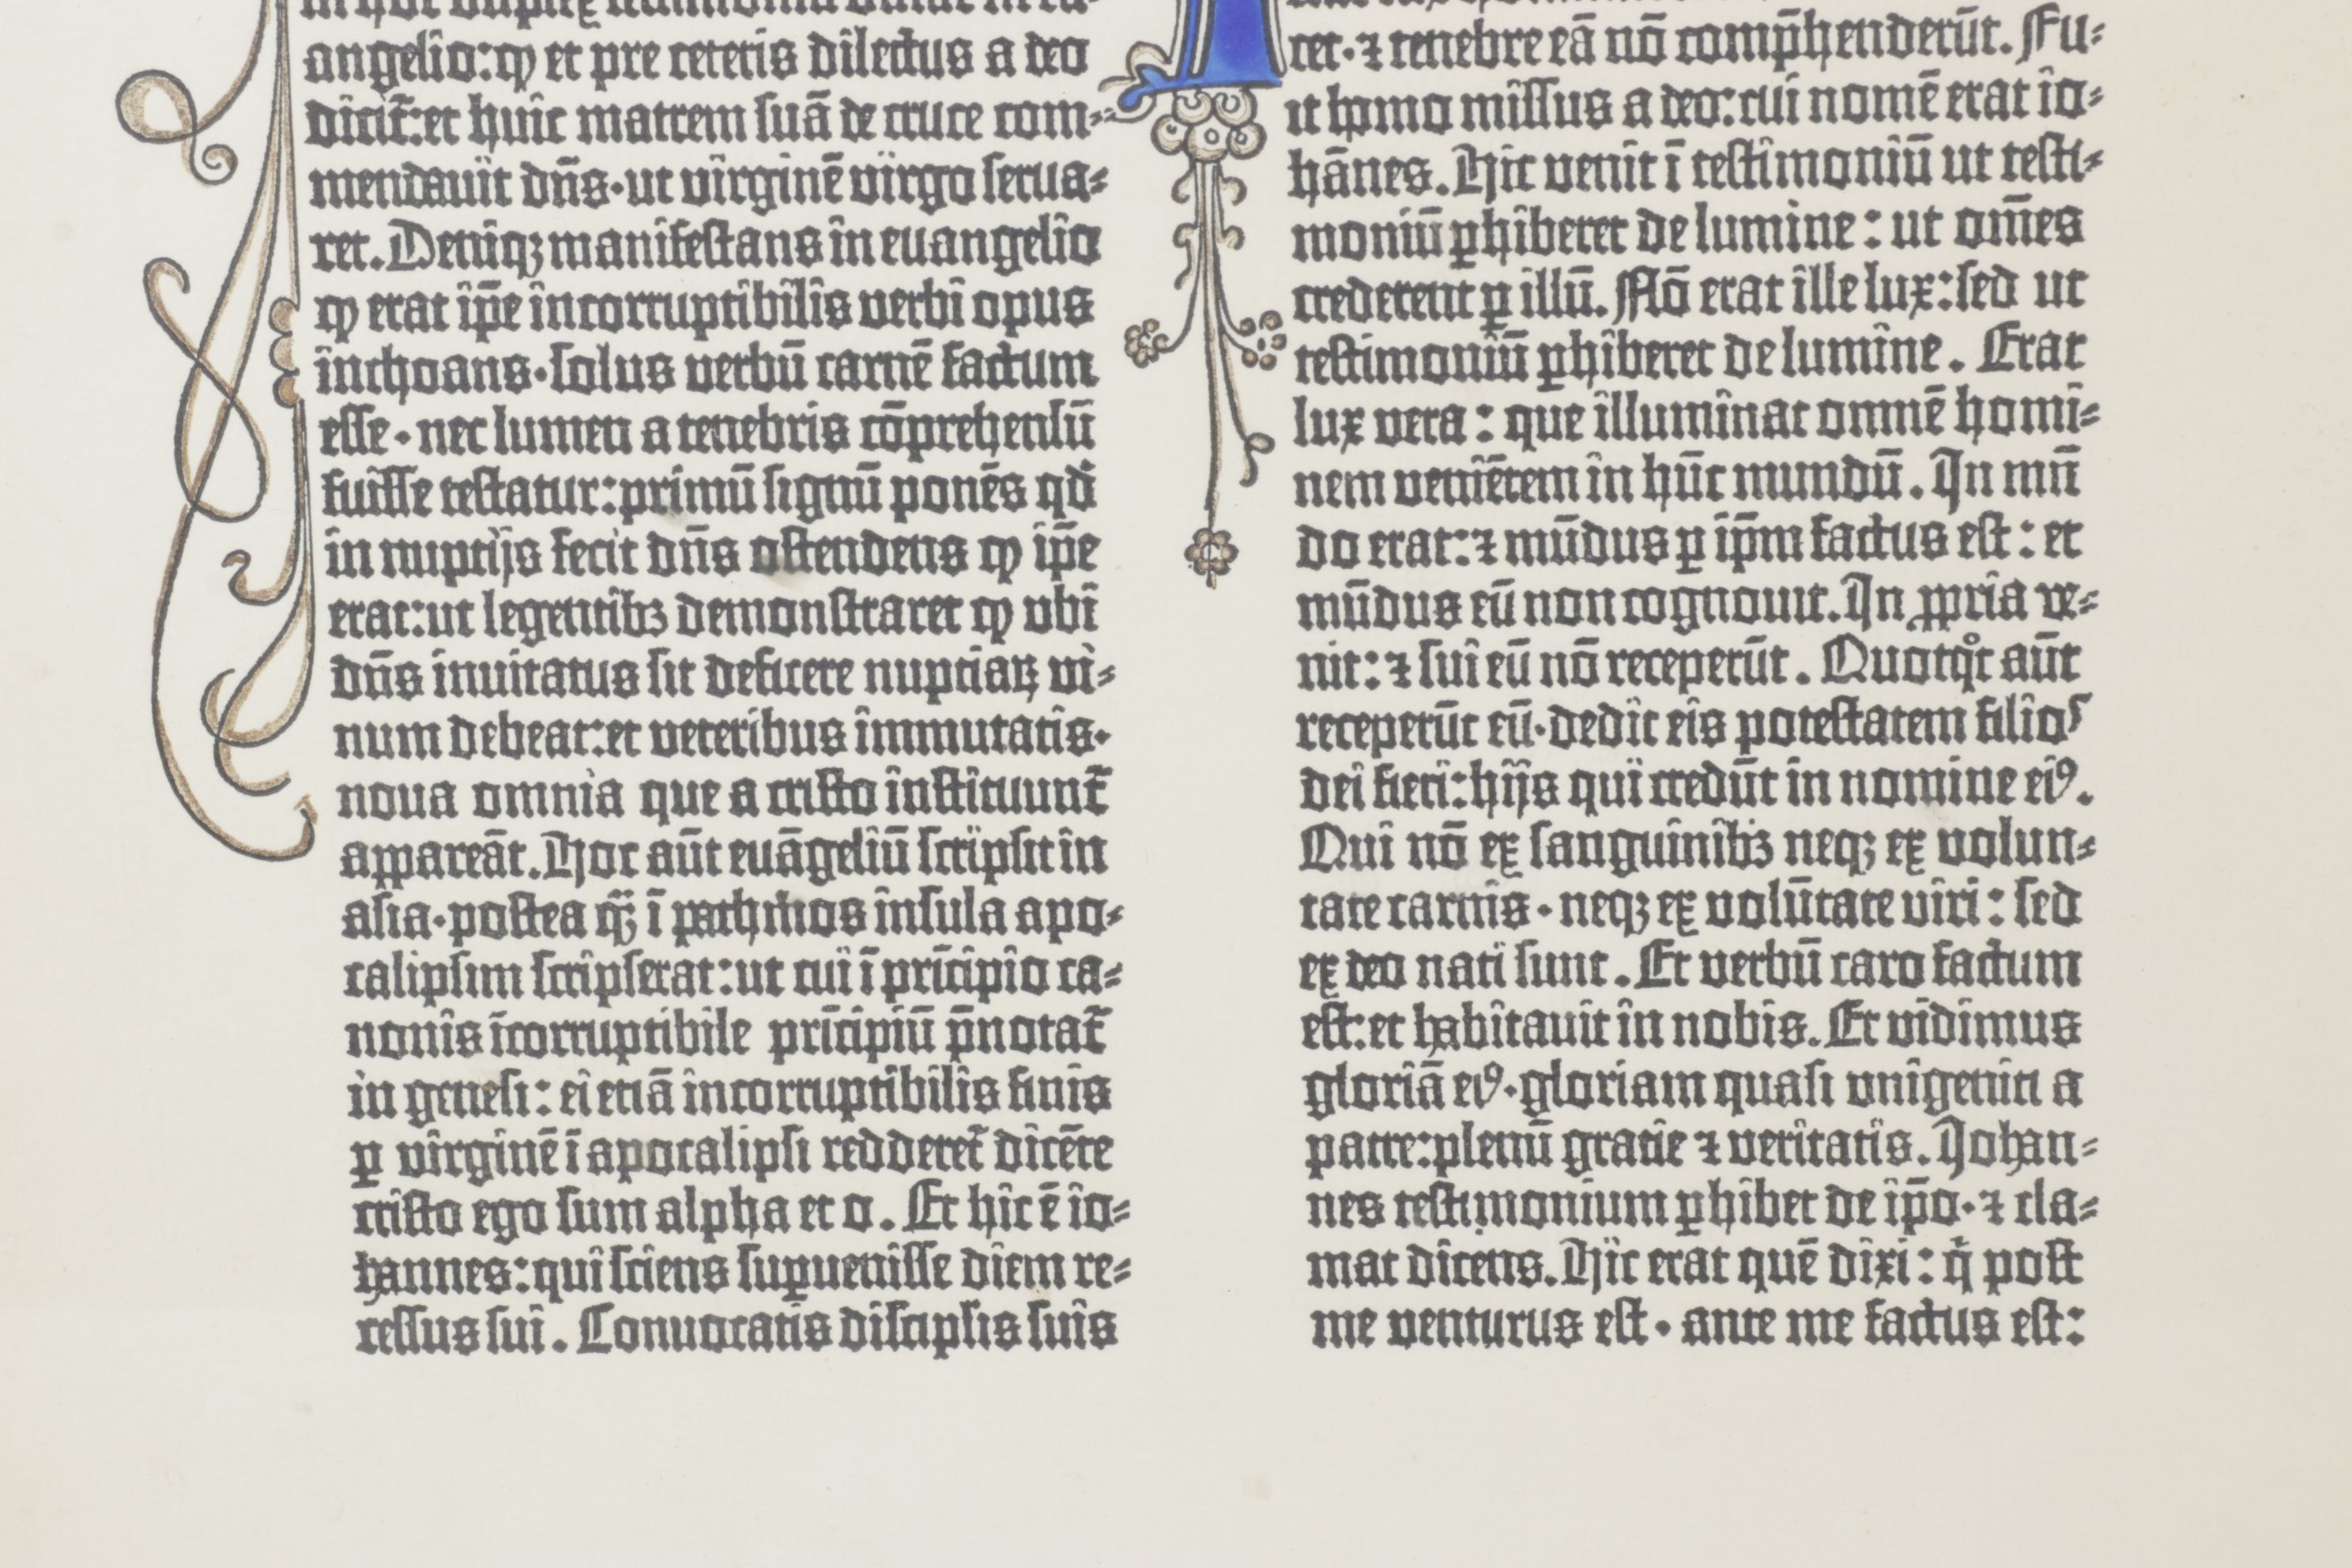 angelio: ꝙ et pre ceteris dilectus a deo
dicit̄: et huic matrem suā de cruce com-
mendauit dn̄s· ut virginē virgo serua-
ret. Deniqꝫ manifestans in euangelio
ꝙ erat ip̄e incorruptibilis verbi opus
inchoans· solus verbū carnē factum
esse· nec lumen a tenebris cōprehensū
fuisse testatur: primū signū ponēs qd̄
in nuptijs fecit dn̄s ostendens ꝙ ip̄e
erat: ut legentibꝫ demonstraret ꝙ vbi
dn̄s inuitatus sit deficere nuptiaꝝ vi-
num debeat: et veteribus immutatis·
noua omnia que a cristo instituunt̄
appareāt. Hoc aūt euāgeliū scripsit in
asia· postea q̄ꝫ ī pathmos insula apo-
calipsim scripserat: ut cui ī prīcipio ca-
nonis īcorruptibile prīcipiū p̄notat̄
in genesi: ei etiā incorruptibilis finis
ꝑ virginē ī apocalipsi redderet̄ dicēte
cristo ego sum alpha et o. Et hic ē io-
hannes: qui sciens suꝑuenisse diem re-
cessus sui. Conuocatis discipl̄is suis
cet· ⁊ tenebre eā nō comp̄henderūt. Fu-
it homo missus a deo: cui nomē erat io-
hānes. Hic venit ī testimoniū ut testi-
moniū ꝑhiberet de lumine: ut om̄es
crederent ꝑ illū. Nō erat ille lux: sed ut
testimoniū ꝑhiberet de lumine. Erat
lux vera: que illuminat omnē homi-
nem veniētem in hūc mundū. In mū
do erat: ⁊ mūdus ꝑ ip̄m factus est: et
mūdus eū non cognouit. In ꝓpria ve-
nit: ⁊ sui eū nō receperūt. Quotqͦt aūt
receperūt eū· dedit eis potestatem filios
dei fieri: hijs qui credūt in nomine eiꝰ.
Qui nō ex sanguinibꝫ neqꝫ ex volun-
tate carnis· neqꝫ ex volūtate viri: sed
ex deo nati sunt. Et verbū caro factum
est: et habitauit in nobis. Et vidimus
gloriā eiꝰ· gloriam quasi vnigeniti a
patre: plenū gratie ⁊ veritatis. Johan-
nes testimonium ꝑhibet de ip̄o· ⁊ cla-
mat dicens. Hic erat quē dixi: q̇ post
me venturus est· ante me factus est: